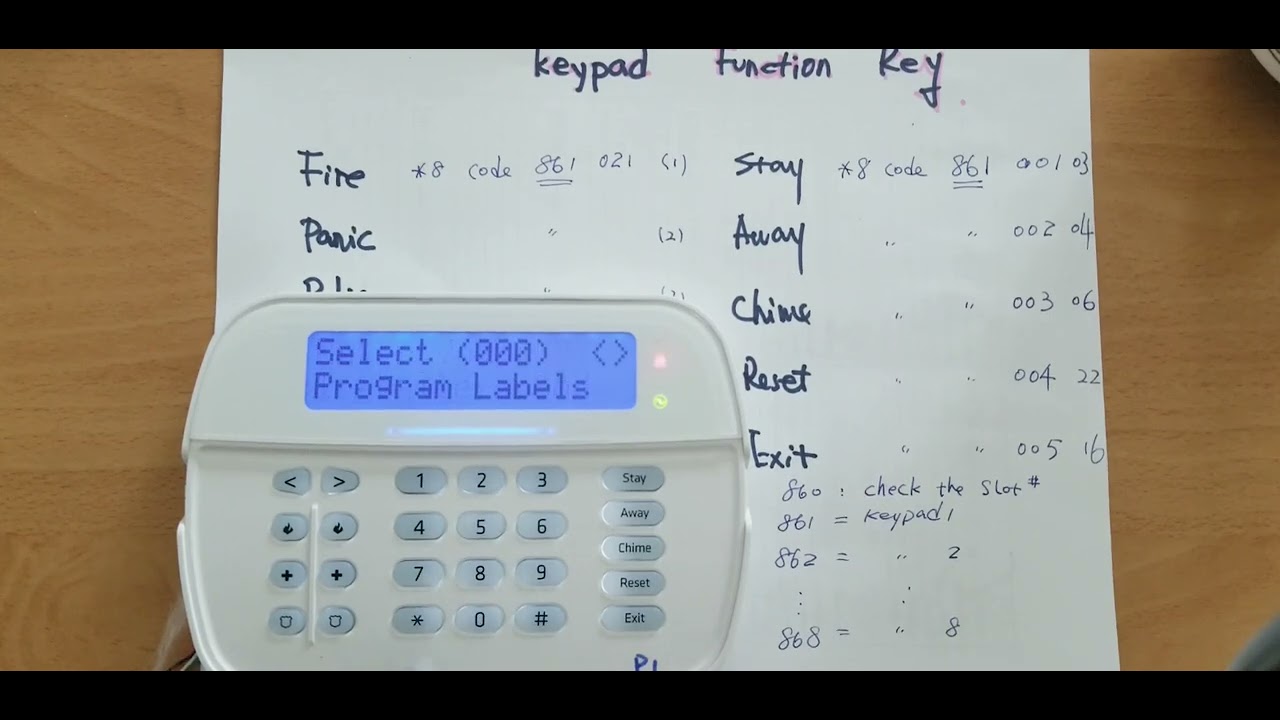 keypad Function Key
Fire *8 code 861 021 (1)
Panic " (2)
Stay *8 code 861 001 03
Away " " 002 04
Chime " " 003 06
Reset " " 004 22
Exit " " 005 16
860 : check the Slot #
861 = keypad 1
862 = " 2
: :
868 = " 8
Select (000) <>
Program Labels
< > 1 2 3 Stay
4 5 6 Away
+ + 7 8 9 Chime
Reset
* 0 # Exit